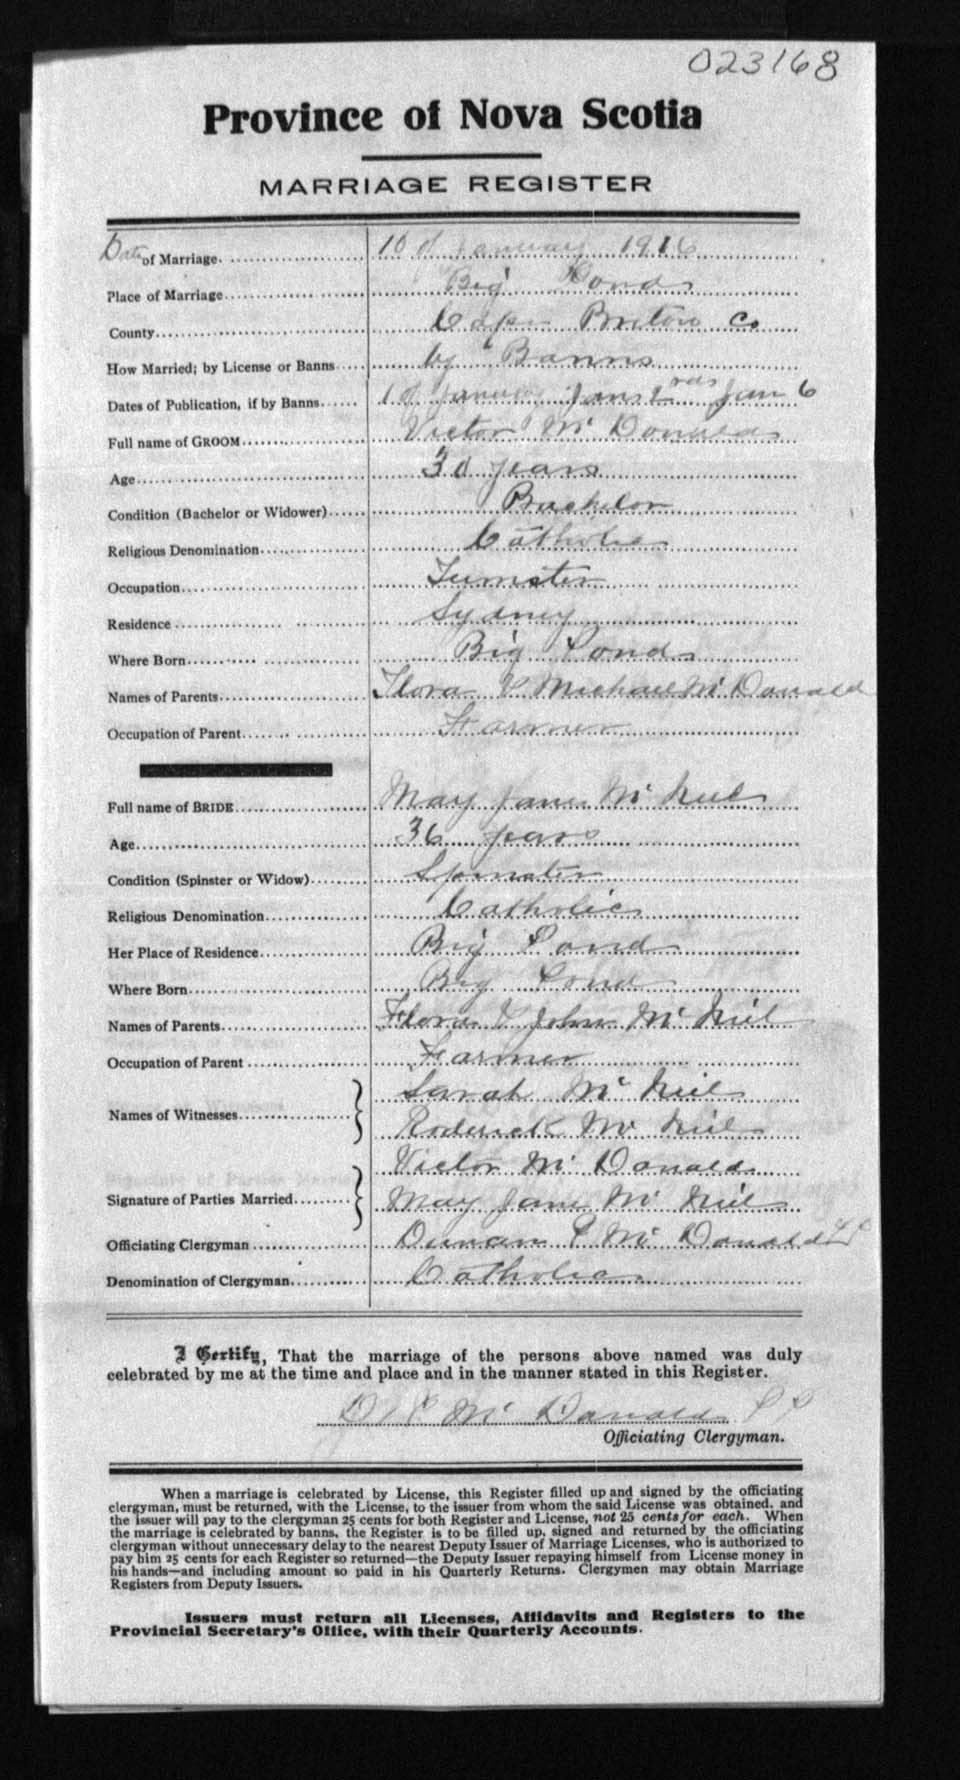 023168
Province of Nova Scotia
MARRIAGE REGISTER
Date of Marriage. 10 of January 1916
Place of Marriage Big Pond
County Cape Breton Co
How Married; by License or Banns by Banns
Dates of Publication, if by Banns 1 of January Jan 2 Jan 6
Full name of GROOM Victor Mc Donald
Age 30 years
Condition (Bachelor or Widower) Bachelor
Religious Denomination Catholic
Occupation Tumster
Residence Sydney
Where Born Big Pond
Names of Parents Flora & Michael Mc Donald
Occupation of Parent Farmer
Full name of BRIDE May Jane Mc Neil
Age 36 years
Condition (Spinster or Widow) Spinster
Religious Denomination Catholic
Her Place of Residence Big Pond
Where Born Big Pond
Names of Parents Flora & John Mc Neil
Occupation of Parent Farmer
Names of Witnesses Sarah Mc Neil
Roderick Mc Neil
Signature of Parties Married Victor Mc Donald
May Jane Mc Neil
Officiating Clergyman Duncan P Mc Donald PP
Denomination of Clergyman Catholic
I Certify, That the marriage of the persons above named was duly
celebrated by me at the time and place and in the manner stated in this Register.
D P Mc Donald PP
Officiating Clergyman.
When a marriage is celebrated by License, this Register filled up and signed by the officiating
clergyman, must be returned, with the License, to the issuer from whom the said License was obtained, and
the issuer will pay to the clergyman 25 cents for both Register and License, not 25 cents for each. When
the marriage is celebrated by banns, the Register is to be filled up, signed and returned by the officiating
clergyman without unnecessary delay to the nearest Deputy Issuer of Marriage Licenses, who is authorized to
pay him 25 cents for each Register so returned—the Deputy Issuer repaying himself from License money in
his hands—and including amount so paid in his Quarterly Returns. Clergymen may obtain Marriage
Registers from Deputy Issuers.
Issuers must return all Licenses, Affidavits and Registers to the
Provincial Secretary's Office, with their Quarterly Accounts.